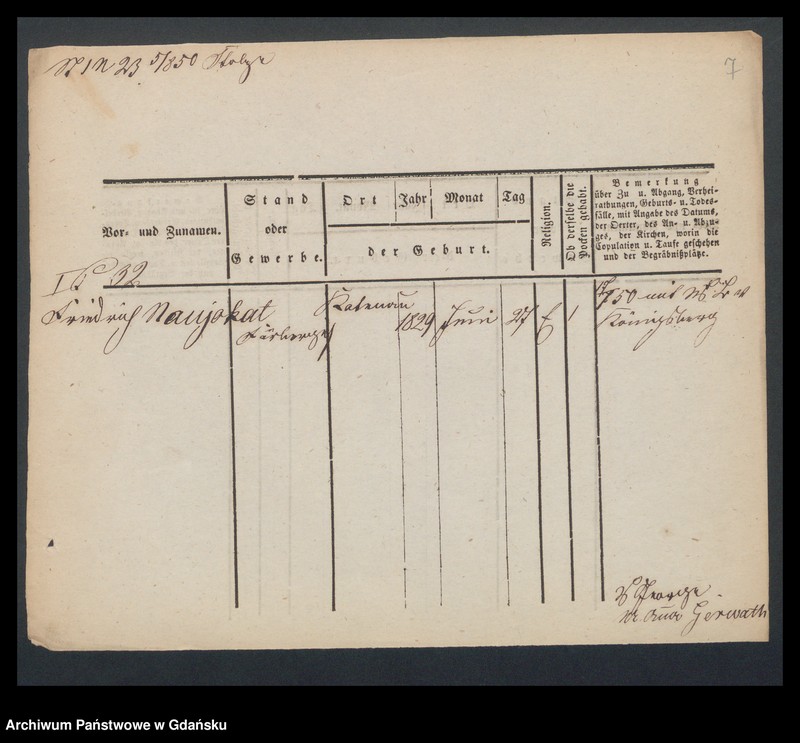 23 5/850
7
Vor- und Zunamen.
Stand
oder
Gewerbe.
Ort
Jahr
Monat
Tag
der Geburt.
Religion.
Ob derselbe die
Pocken gehabt.
Bemerkung
über Zu u. Abgang, Verhei-
rathungen, Geburts- u. Todes-
fälle, mit Angabe des Datums,
der Oerter, des An- u. Abzu-
ges, der Kirchen, worin die
Copulation u. Taufe geschehen
und der Begräbnißplätze.
32
Friedrich Naujokat
Färberges
Katenau
1829
Juni
27
E
1
50 mit
Königsberg
George
Gerwath
Archiwum Państwowe w Gdańsku